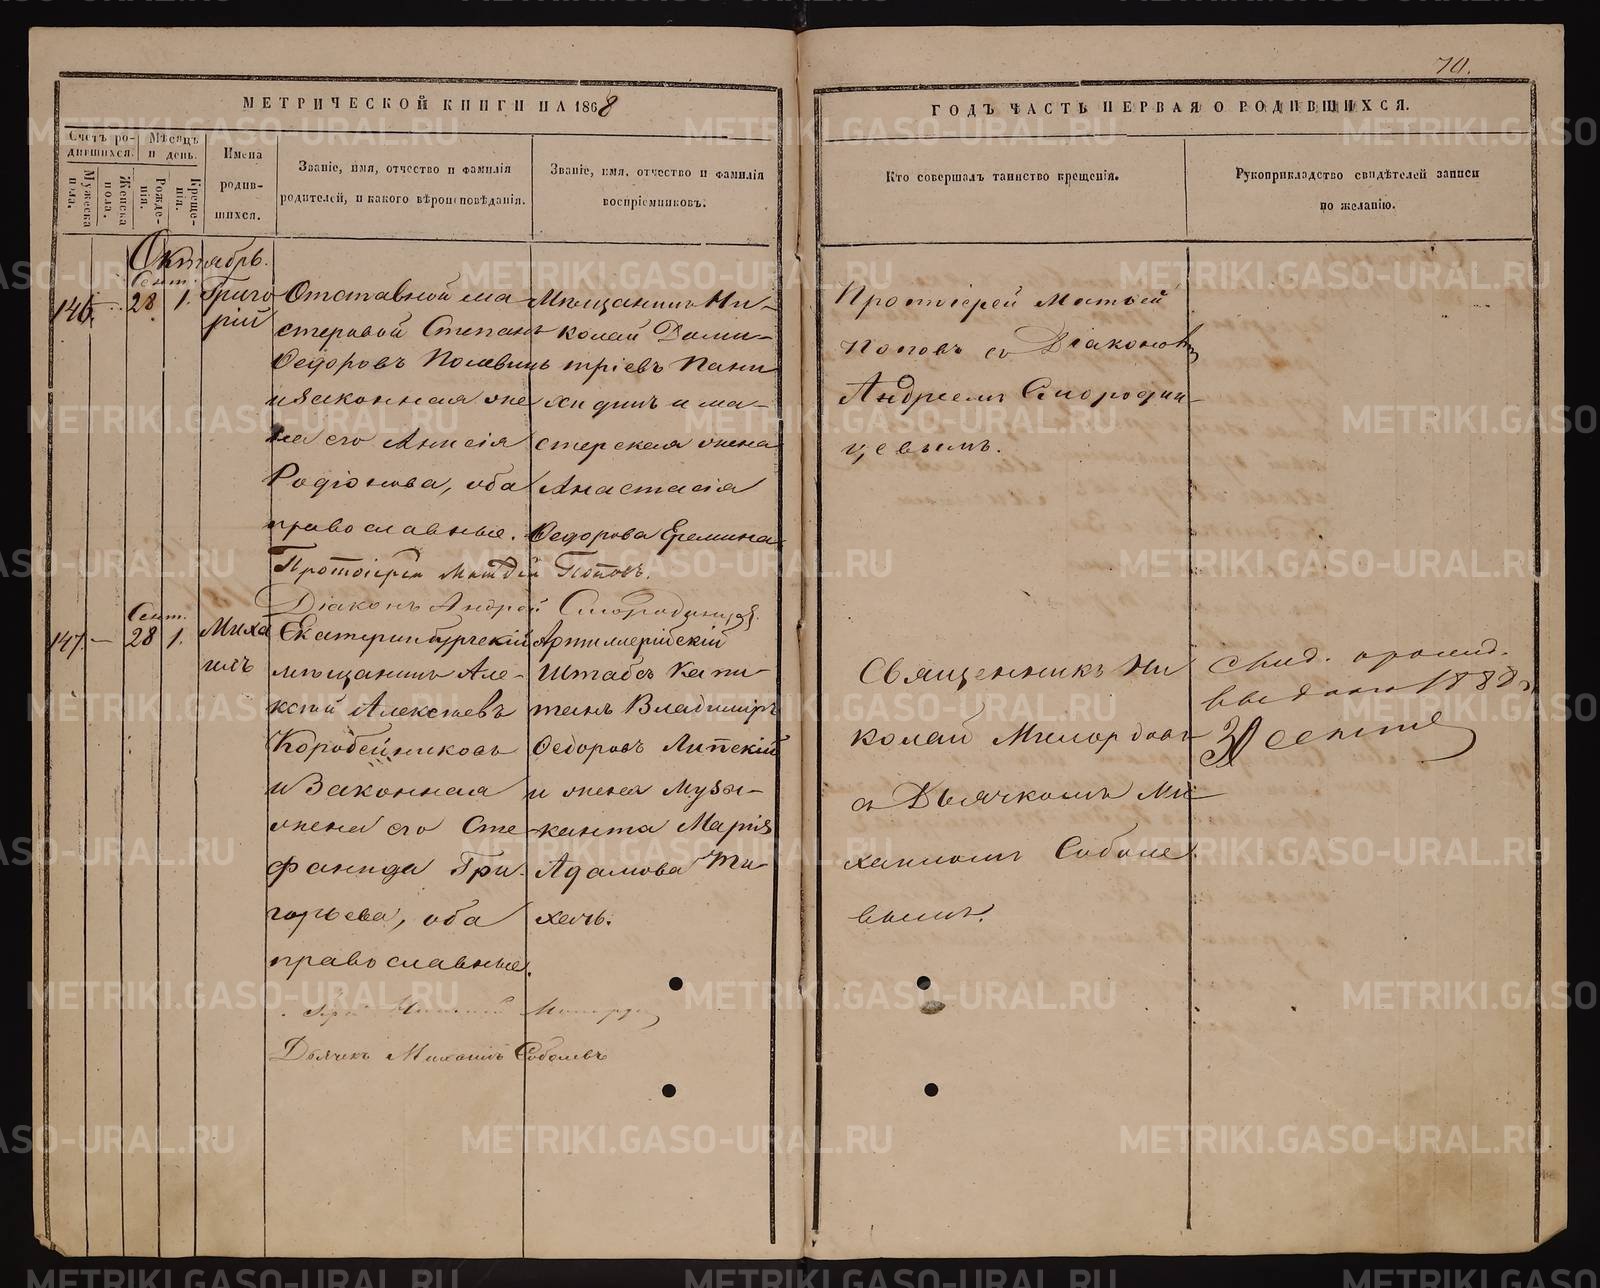 70.
МЕТРИЧЕСКОЙ КНИГИ НА 1868
ГОДЪ ЧАСТЬ ПЕРВАЯ О РОДИВШИХСЯ.
Счетъ родившихся.
Мужеска пола.
Женска пола.
Мѣсяцъ и день.
Рожденія.
Крещенія.
Имена родившихся.
Званіе, имя, отчество и фамилія
родителей, и какого вѣроисповѣданія.
Званіе, имя, отчество и фамилія
воспріемниковъ.
Кто совершалъ таинство крещенія.
Рукоприкладство свидѣтелей записи
по желанію.
Октябрь.
146. – Сент. 28 1.
Григо
рій
Отставной ма-
стеровой Степанъ
Ѳедоровъ
и законная же
на его Анисія
Родіонова, оба
православные.
Мѣщанинъ Ни-
колай Дими-
тріевъ Пани
хидинъ и ма-
стерская жена
Анастасія
Ѳедорова Еремина
Протоіерей Матѳей
Поповъ со Діакономъ
Андреемъ Смородин-
цевымъ.
Протоіерей Матѳей Поповъ.
Діаконъ Андрей Смородинцевъ.
147. – Сент. 28 1.
Миха
илъ
Екатеринбургскій
мѣщанинъ Але-
ксѣй Алексѣевъ
Коробейниковъ
и Законная
жена его Сте-
фанида Гри-
горьева, оба
православные.
Артиллерійскій
Штабсъ Капи-
танъ Владиміръ
Ѳедоровъ Липскій
и жена Музы-
канта Марія
Адамова Ми-
хель.
Священникъ Ни
колай Милордовъ
съ Дьячкомъ Ми-
хаиломъ Соболе
вымъ.
Свид.
выдано 188
30 сентя
Николай
Дьячекъ Михаилъ Соболевъ
METRIKI.GASO-URAL.RU